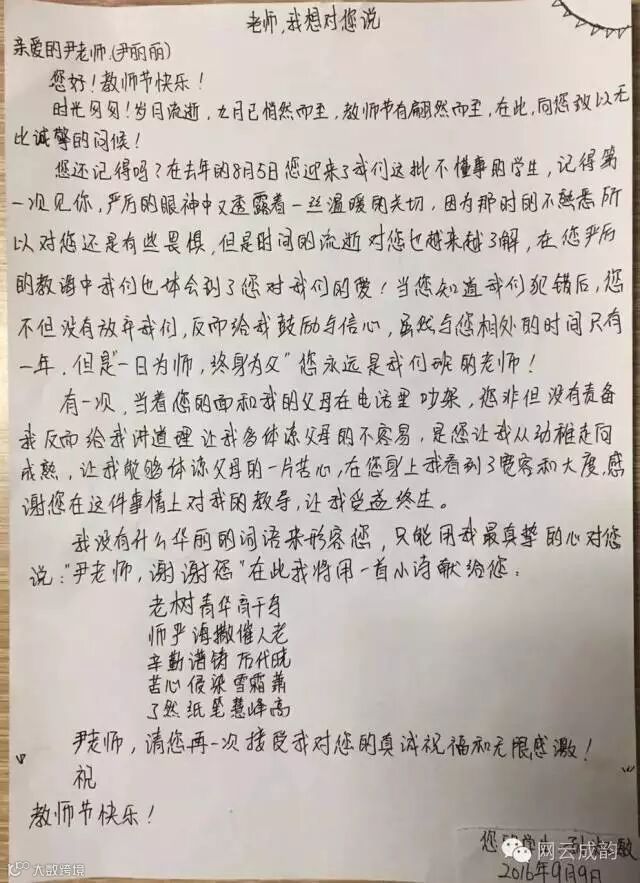 老师,我想对您说
亲爱的尹老师.(尹丽丽)
您好!教师节快乐!
时光匆匆!岁月流逝,九月已悄然而至,教师节有翩然而至,在此,向您致以无
比诚挚的问候!
您还记得吗?在去年的8月5日您迎来了我们这批不懂事的学生,记得第
一次见你,严厉的眼神中又透露着一丝温暖的关切,因为那时的不熟悉所
以对您还是有些畏惧,但是时间的流逝对您也越来越了解,在您严厉
的教诲中我们也体会到了您对我们的爱!当您知道我们犯错后,您
不但没有放弃我们,反而给我鼓励与信心,虽然与您相处的时间只有
一年,但是"一日为师,终身为父"您永远是我们班的老师!
有一次,当着您的面和我的父母在电话里吵架,您非但没有责备
我反而给我讲道理让我多体谅父母的不容易,是您让我从幼稚走向
成熟,让我能够体谅父母的一片苦心,在您身上我看到了宽容和大度,感
谢您在这件事情上对我的教导,让我受益终生。
我没有什么华丽的词语来形容您,只能用我最真挚的心对您
说:"尹老师,谢谢您"在此我将用一首小诗献给您:
老树青华高千鸟
师严海撒催人老
辛勤谱铸万代晓
苦心侵染雪霜萧
了然纸笔慧峰高
尹老师,请您再一次接受我对您的真诚祝福和无限感激!
祝
教师节快乐!
您的学生
网云成韵
2016年9月9日
大数跨境